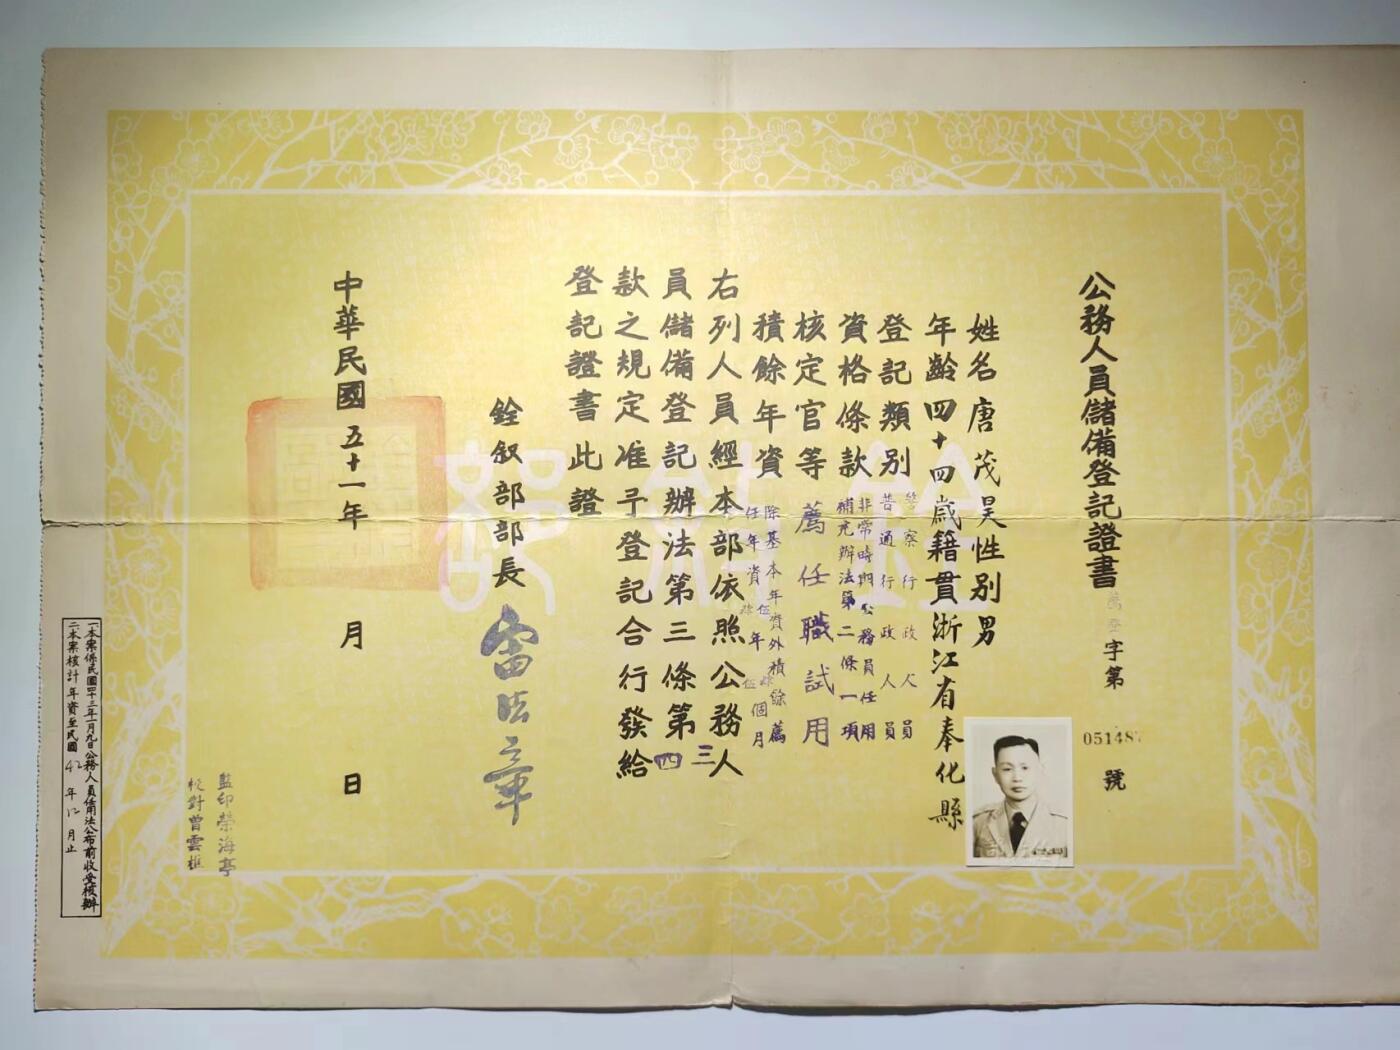 公務人員儲備登記證書
字第
號
姓名唐茂昊性別男
年齡四十四歲籍貫浙江省奉化縣
登記類別 警察行政人員
普通行政人員
資格條款 非常時期公務員任用
補充辦法第二條一項
核定官等薦任職試用
積餘年資 除基本年資外積餘薦
任年資 年 個月
右列人員經本部依照公務人
員儲備登記辦法第三條第三
四
款之規定准予登記合行發給
登記證書此證
銓敘部部長 雷法章
中華民國五十一年 月 日
銓敘部
監印榮海亭
校對曾雲樵
一本案係民國四十三年一月九日公務人員任用法公布前收受核辦
二本案核計年資至民國42年12月止